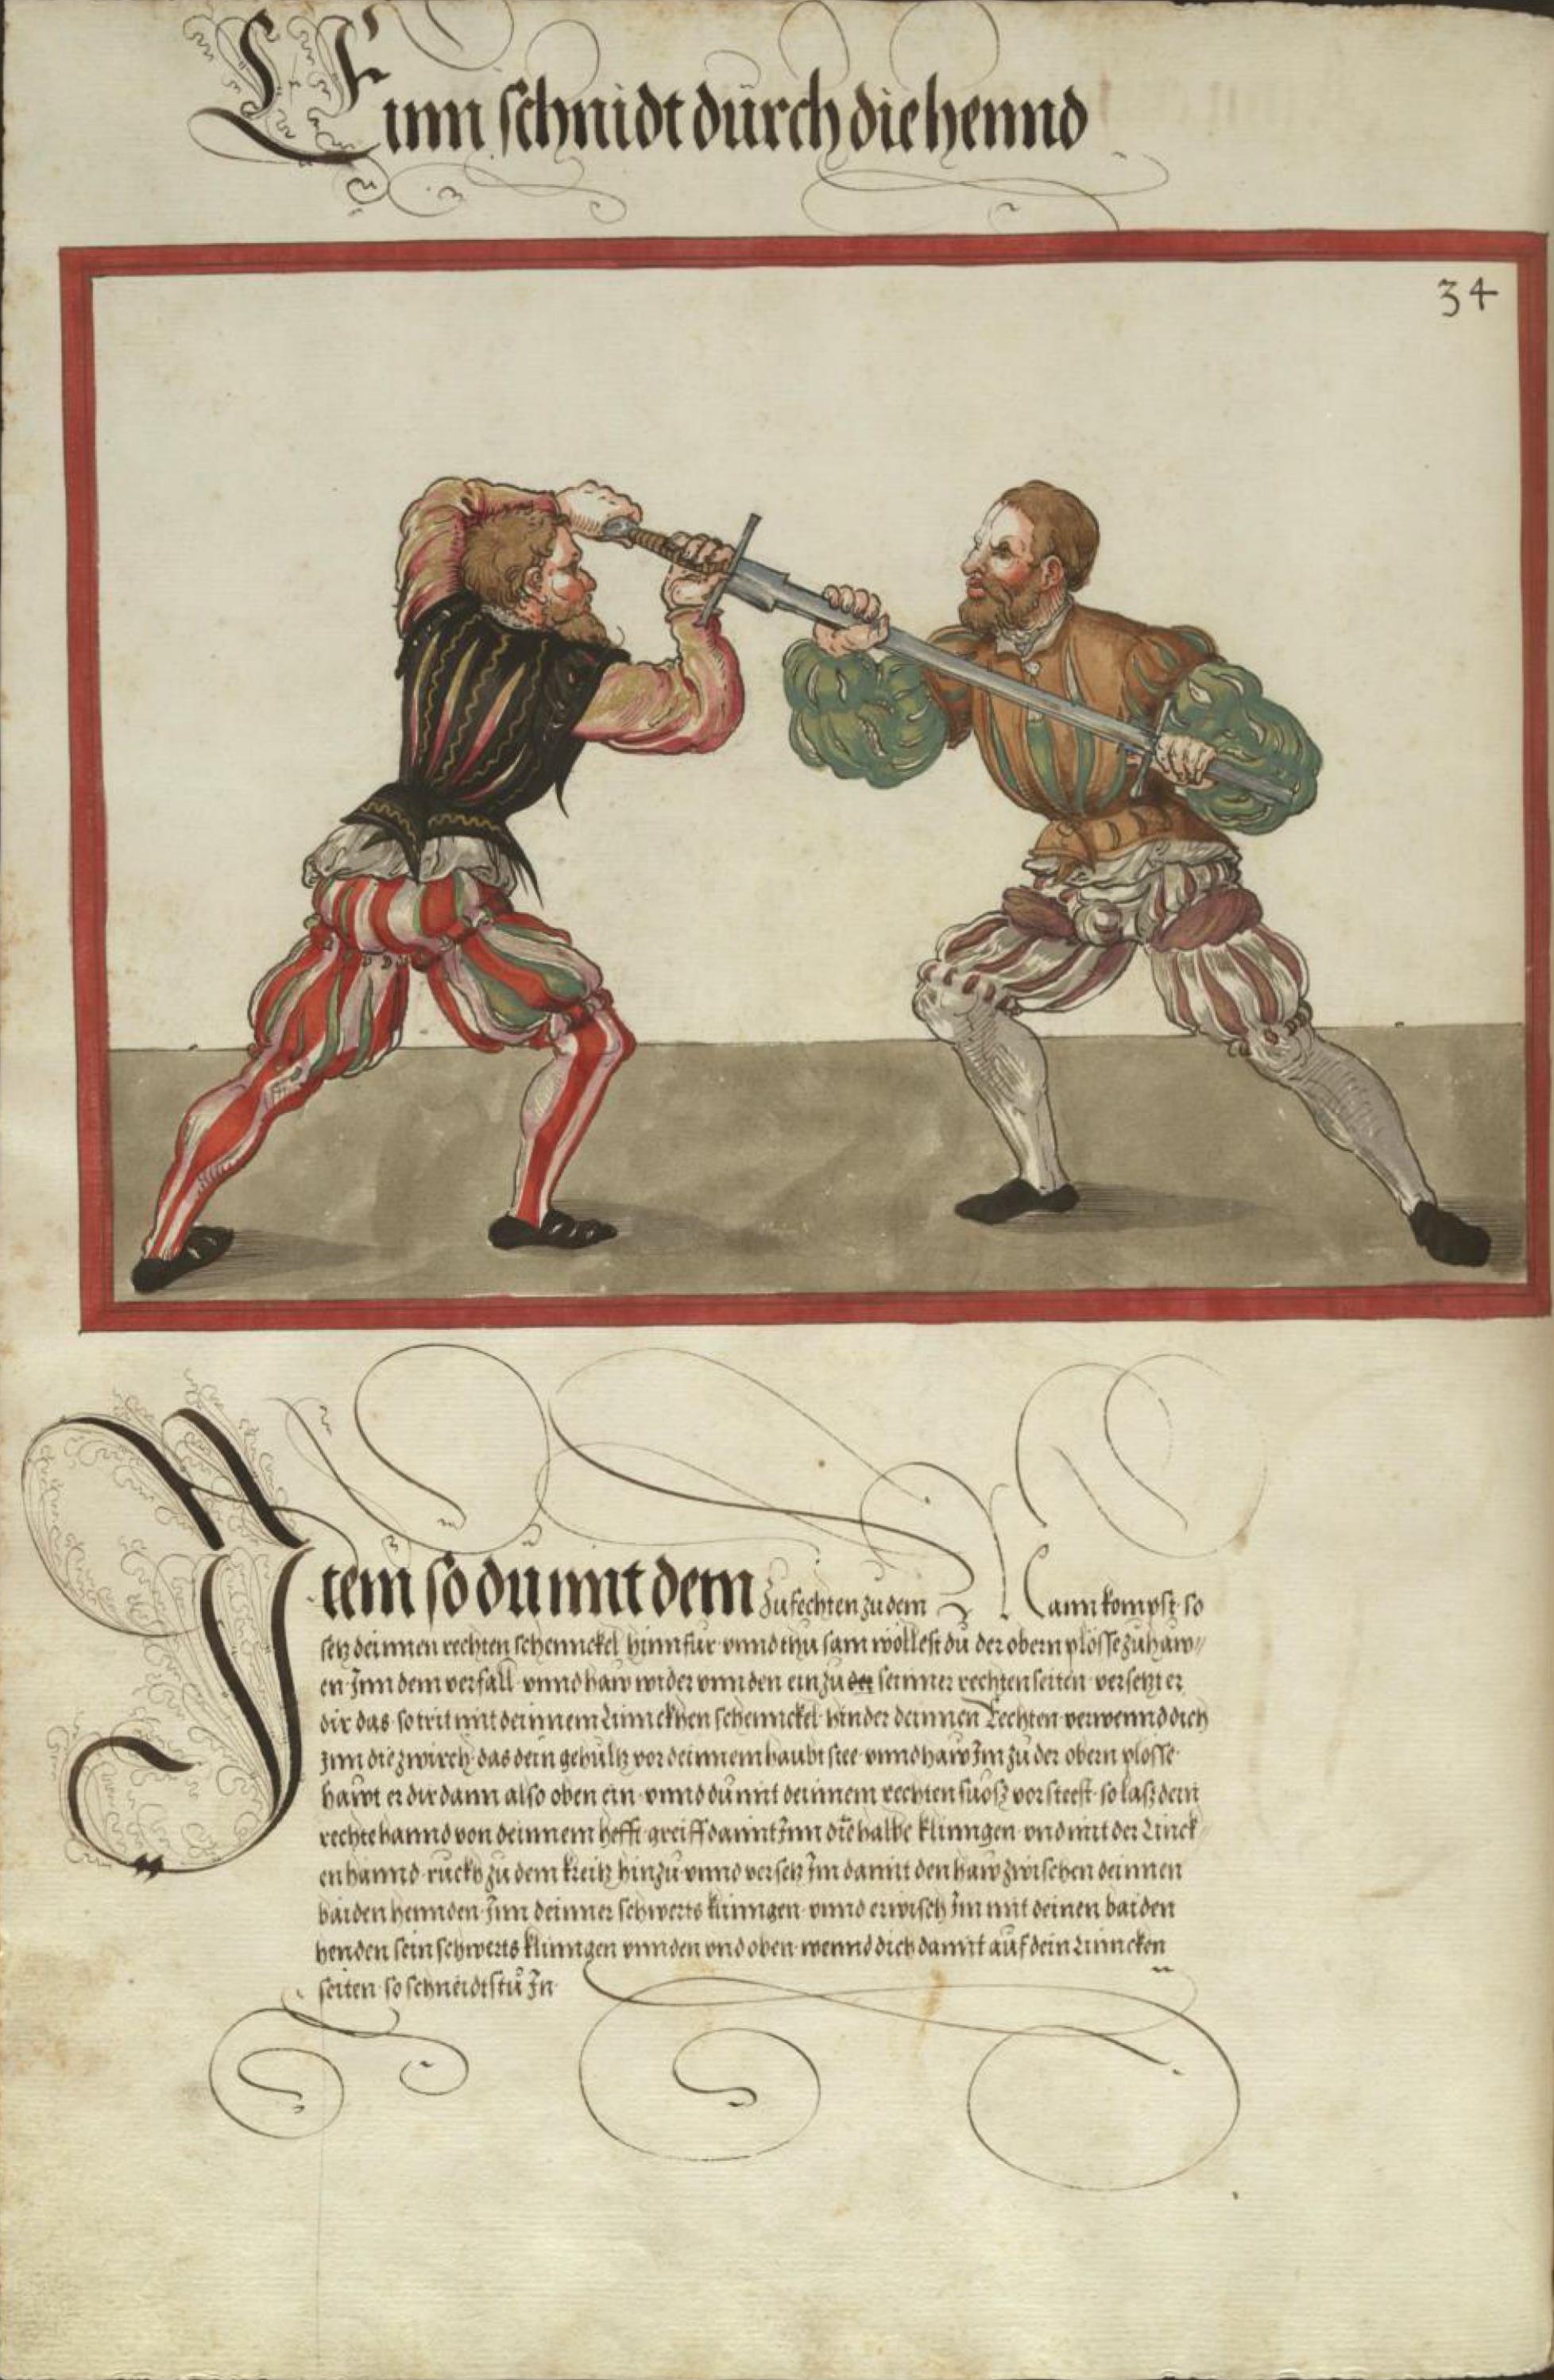 Einn schnidt durch die hennd
34
Item so du mit dem zufechten zu dem Mann kompst so
setz deinnen rechten schennckel hinnfür vnnd thu sam wöllest du der obern plösse zu haw„
en Inn dem verfall vnnd haw wider vnnden ein zu der seinner rechten seiten versetzt er
dir das so trit mit deinnem Linnckhen schennckel hinder deinnen Rechten verwennd dich
Inn die zwirch das dein gehültz vor deinnem haubt stee vnnd haw Im zu der obern plosse
hawt er dir dann also oben ein vnnd du mit deinnem rechten fuosz vor steest so lasz dein
rechte hannd von deinnem hefft greiff damit Inn die halbe klinngen vnd mit der Linck
en hannd ruckh zu dem kreitz hinzu vnnd versetz Im damit den haw zwischen deinnen
baiden hennden Inn deinner schwerts klinngen vnnd erwisch Im mit deinen baiden
henden sein schwerts klinngen vnnden vnd oben wennd dich damit auf dein Linncken
seiten so schneidtstu In